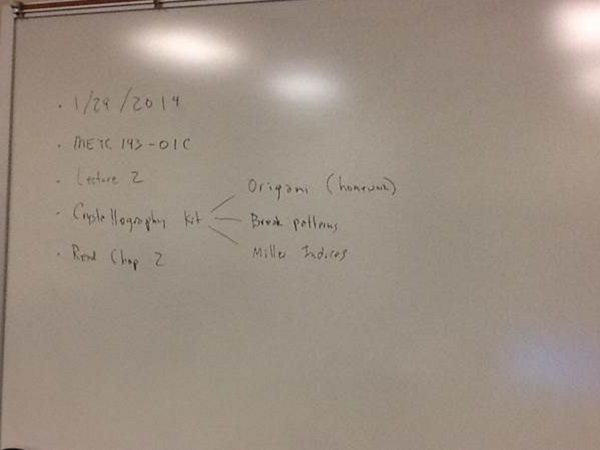 · 1/29/2014
· METC 143-01C
· Lecture 2
· Crystallography Kit
Origami (homework)
Break patterns
Miller Indices
· Read Chap 2